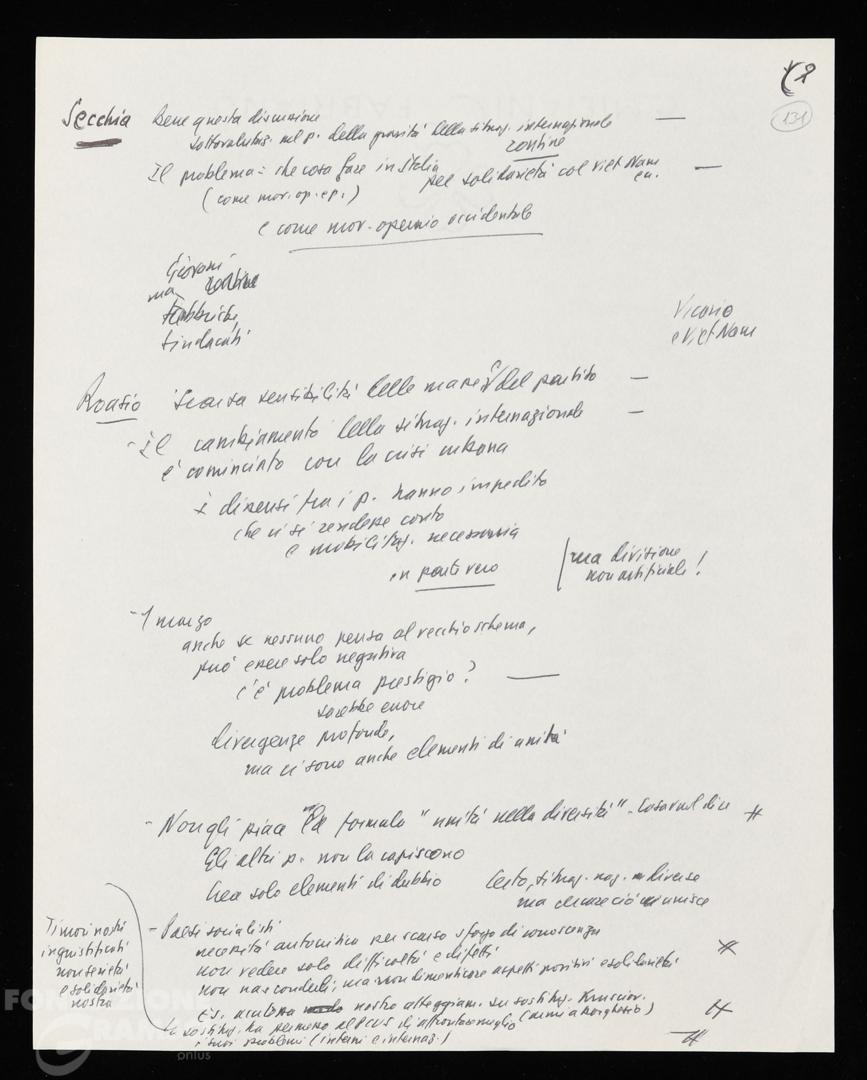 131
Secchia Bene questa discussione —
sottovalutaz. nel p. della gravità della situaz. internazionale
Il problema: che cosa fare in Italia per solidarietà col Viet Nam —
(come mov. op. e p.)
e come mov. operaio occidentale
Giovani
ma
fabbriche,
sindacati
Vicario
e Viet Nam
Roasio Scarsa sensibilità delle masse e del partito —
- Il cambiamento della situaz. internazionale —
è cominciato con la crisi cubana
I dissensi tra i p. hanno impedito
che ci si rendesse conto
e mobilitaz. necessaria
in parte vero
ma divisione
non artificiale!
- 1 marzo
anche se nessuno pensa al vecchio schema,
può essere solo negativa
c'è problema prestigio? —
sarebbe errore
divergenze profonde,
ma ci sono anche elementi di unità
- Non gli piace la formula "unità nella diversità" - Cosa vuol dire #
Gli altri p. non la capiscono
Crea solo elementi di dubbio
Certo, situaz. naz. diverse
ma che ciò unisce
Timori nostri
ingiustificati
non serietà
e solidarietà
nostra
- Paesi socialisti
necessità autocritica per scarso sforzo di conoscenza
non vedere solo difficoltà e difetti #
non nasconderli, ma non dimenticare aspetti positivi e solidarietà
nostro atteggiam. su sostituz. Krusciov.
La sostituz. ha permesso al PCUS di affrontare meglio #
i suoi problemi (interni e internaz.) #
FONDAZIONE
GRAMSCI
onlus